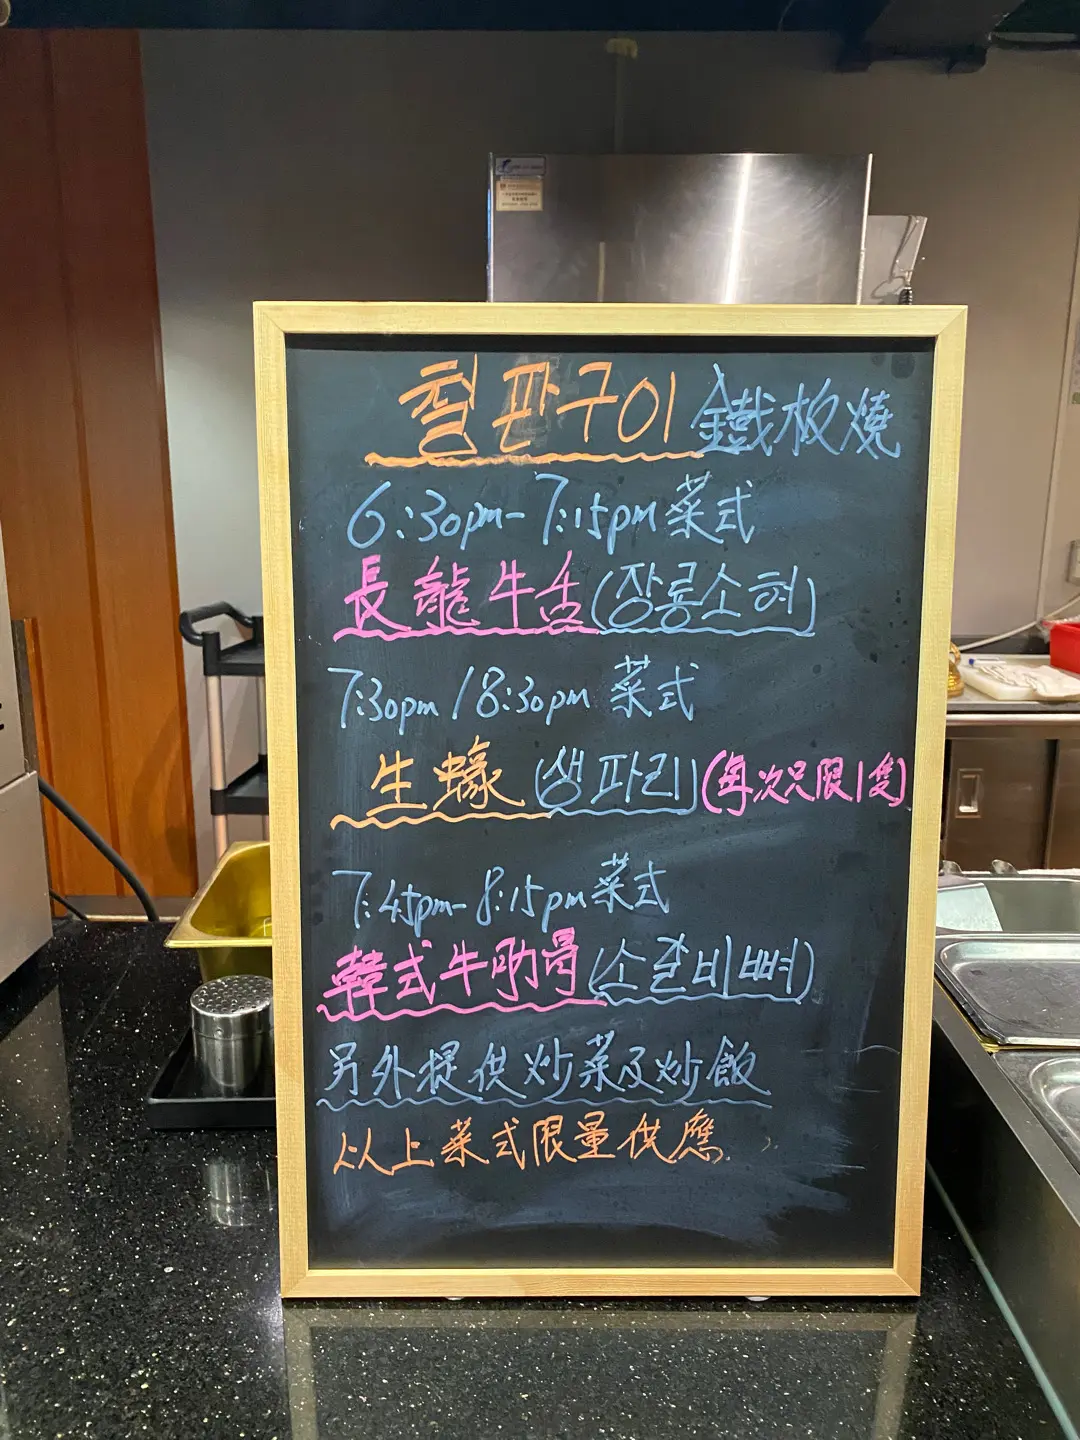 철판구이 鐵板燒
6:30pm-7:15pm 菜式
長龍牛舌(장롱소혀)
7:30pm/8:30pm 菜式
生蠔(생파리)(每次只限1隻)
7:45pm-8:15pm 菜式
韓式牛肋骨(소갈비뼈)
另外提供炒菜及炒飯
以上菜式限量供應